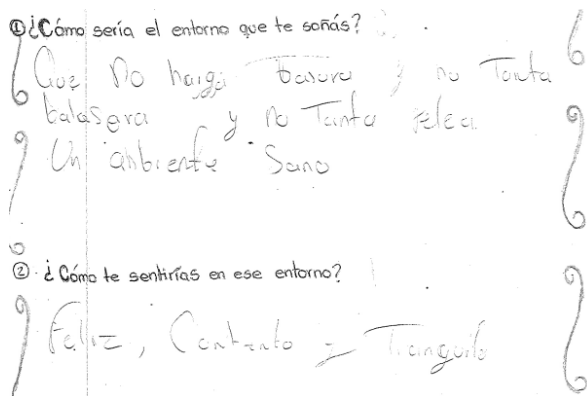 ① ¿Cómo sería el entorno que te soñás?
Que No haiga basura y no Tanta
balasera y no Tanta pelea
Un anbiente Sano
② ¿Cómo te sentirías en ese entorno?
Feliz, Contento y Tranquilo